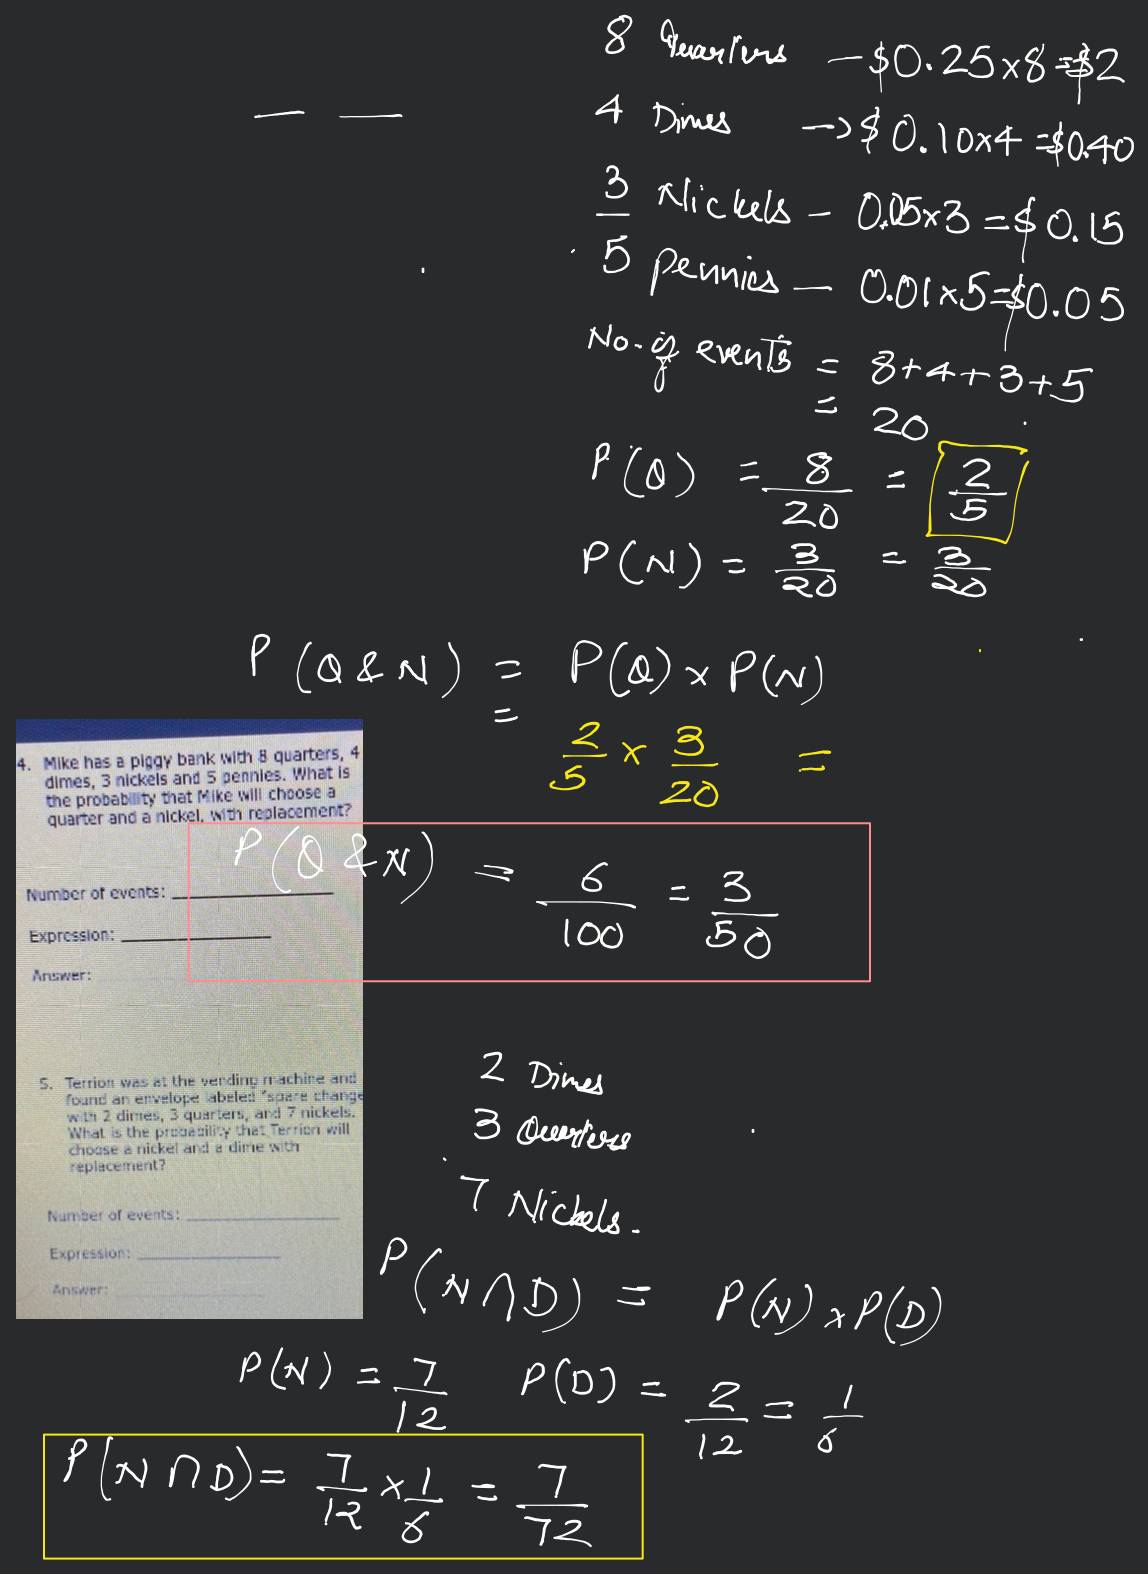 8 Quarters - $0.25x8=$2
4 Dimes -> $0.10x4 =$0.40
3 Nickels - 0.05x3 = $0.15
5 pennies - 0.01x5=$0.05
No. of events = 8+4+3+5
= 20
P(Q) = 8/20 = 2/5
P(N) = 3/20 = 3/20
P(Q & N) = P(Q) x P(N)
= 2/5 x 3/20 =
4. Mike has a piggy bank with 8 quarters, 4
dimes, 3 nickels and 5 pennies. What is
the probability that Mike will choose a
quarter and a nickel, with replacement?
P(Q & N) = 6/100 = 3/50
Number of events:
Expression:
Answer:
5. Terrion was at the vending machine and
found an envelope labeled "spare change
with 2 dimes, 3 quarters, and 7 nickels.
What is the probability that Terrion will
choose a nickel and a dime with
replacement?
Number of events:
Expression:
Answer:
2 Dimes
3 Quarters
7 Nickels.
P(N∩D) = P(N) x P(D)
P(N) = 7/12 P(D) = 2/12 = 1/6
P(N∩D) = 7/12 x 1/6 = 7/72